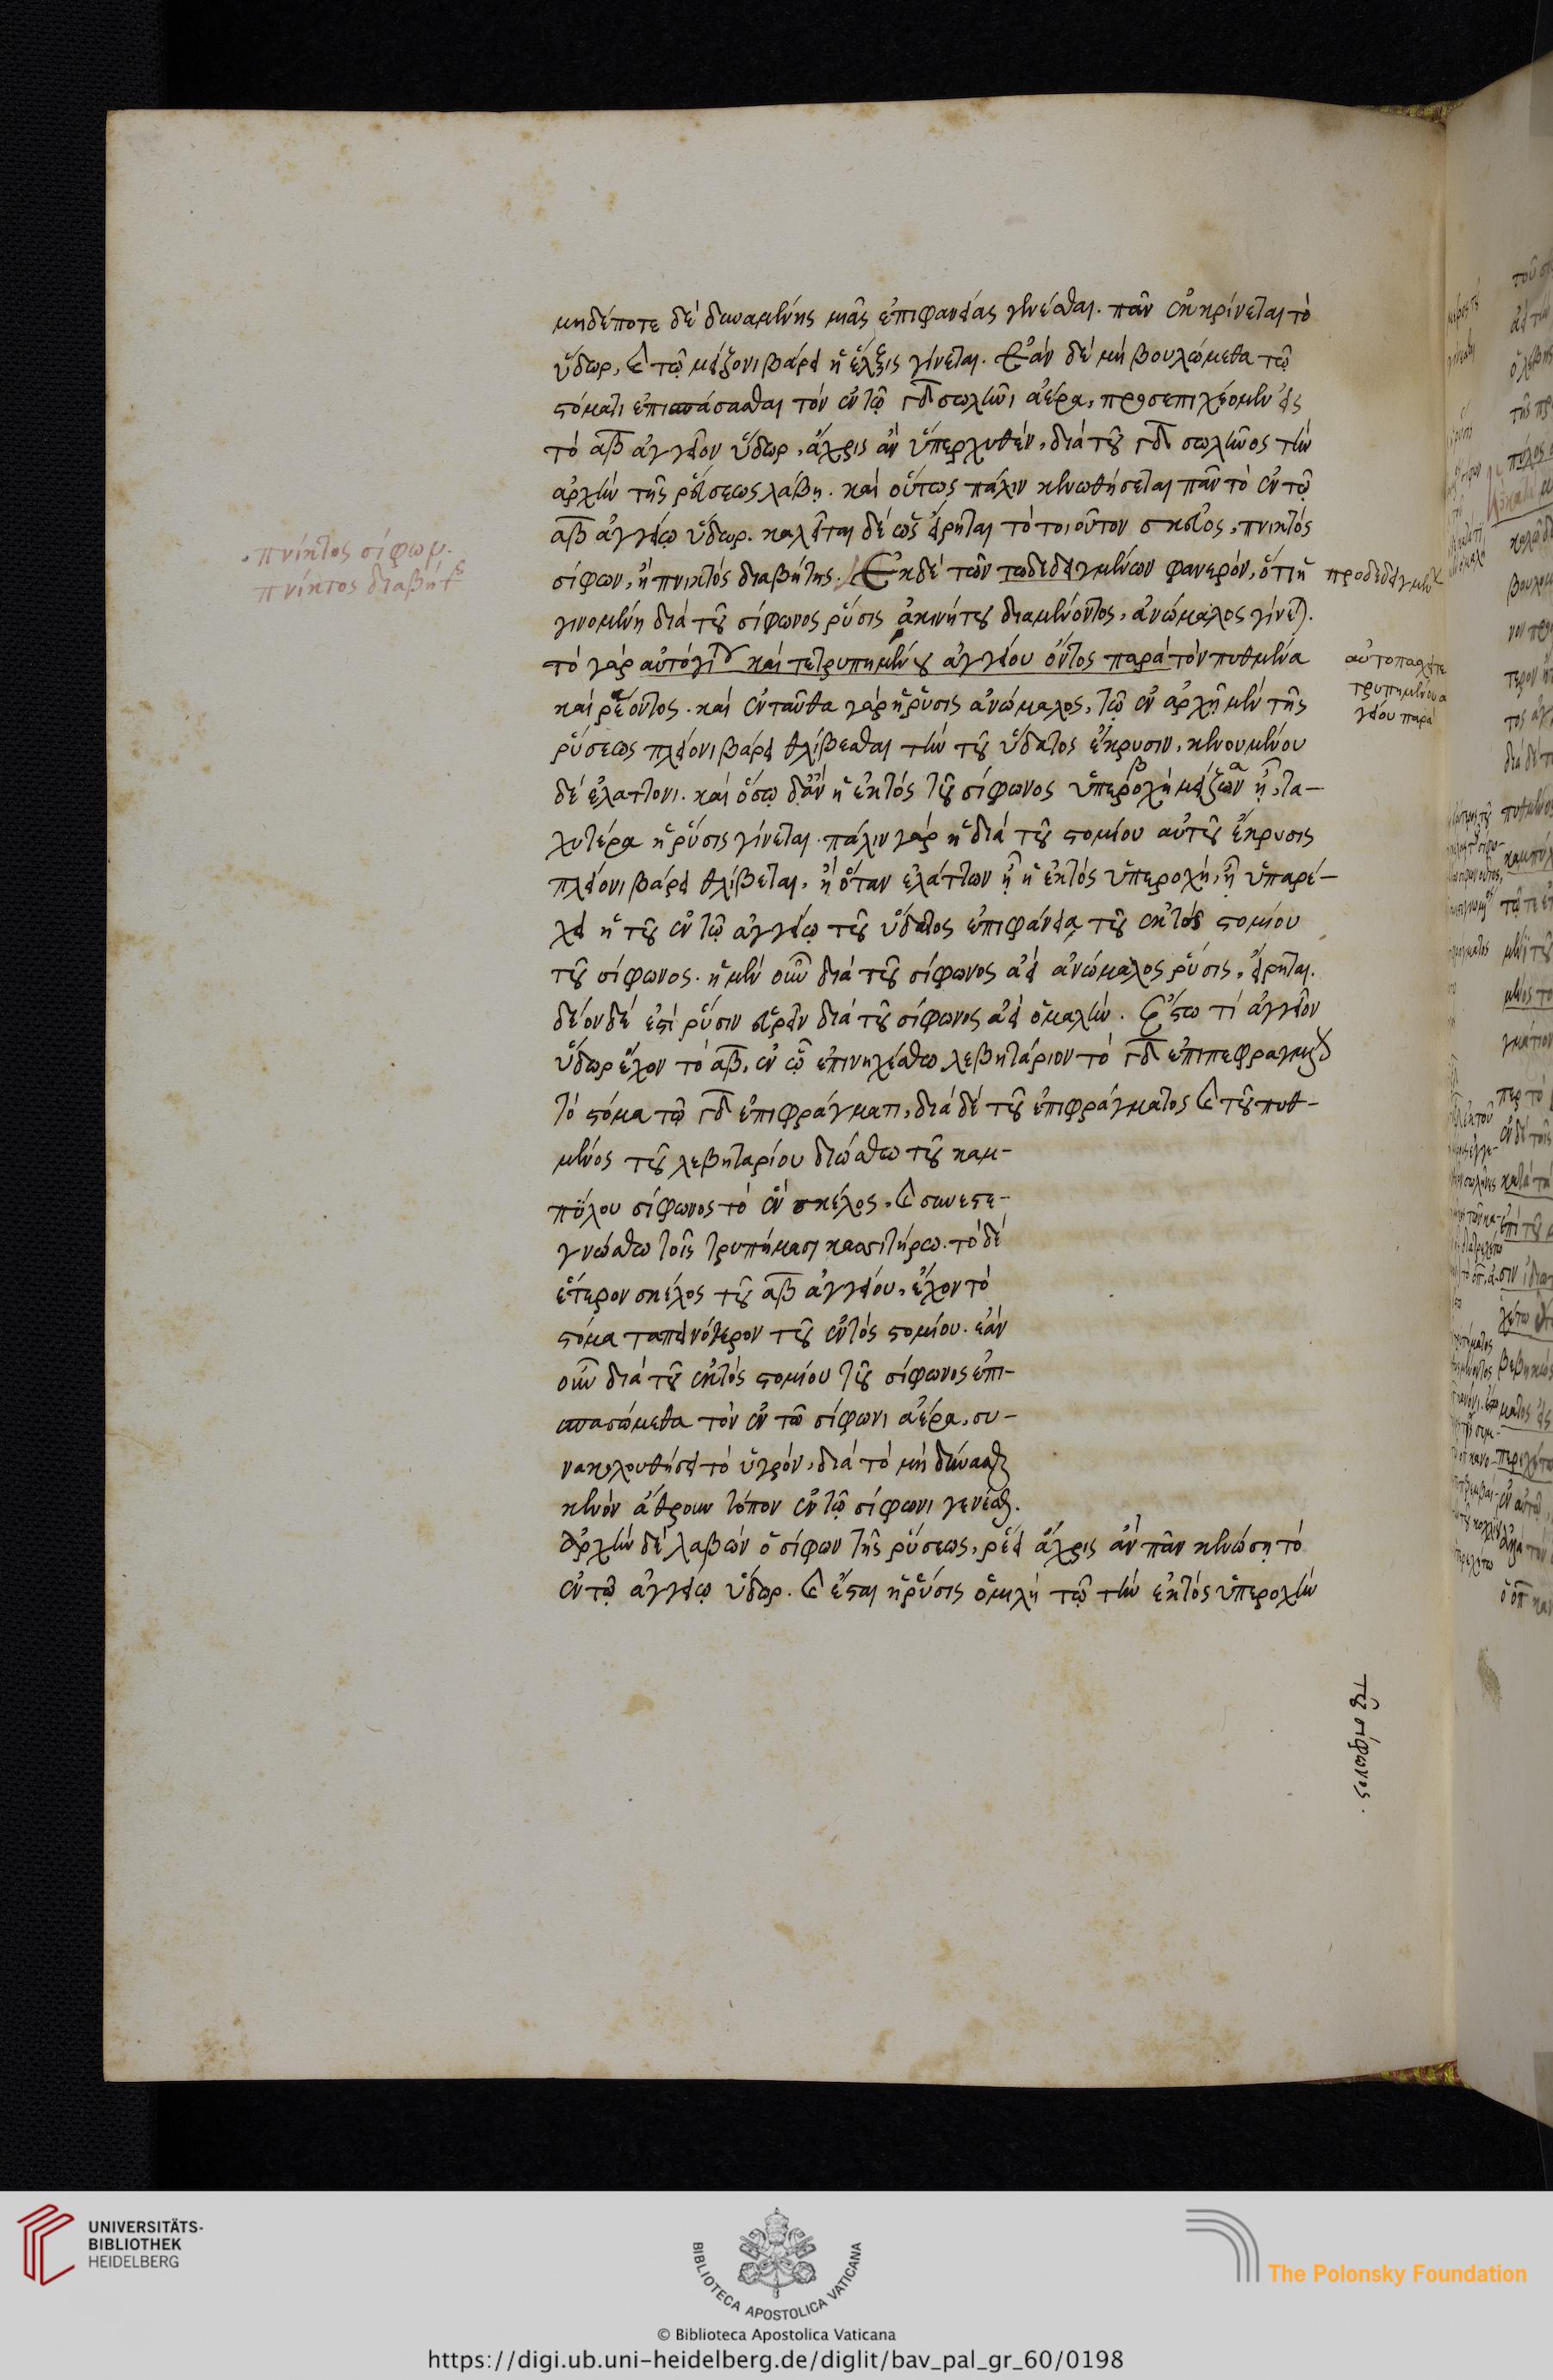 μηδέποτε δὲ δυναμένης μιᾶς ἐπιφανείας γενέσθαι. πᾶν ἐκκρίνεται τὸ
ὕδωρ, καὶ τῷ μείζονι βάρει ἡ ἕλξις γίνεται. Ἐὰν δὲ μὴ βουλώμεθα τῷ
στόματι ἐπισπάσασθαι τὸν ἐν τῷ γδ σωλῆνι ἀέρα, προσεπιχέομεν εἰς
τὸ αβ ἀγγεῖον ὕδωρ, ἄχρις ἂν ὑπερχυθὲν, διὰ τοῦ γδ σωλῆνος τὴν
ἀρχὴν τῆς ῥεύσεως λάβῃ. καὶ οὕτως πάλιν κενωθήσεται πᾶν τὸ ἐν τῷ
αβ ἀγγείῳ ὕδωρ. καλεῖται δὲ ὡς εἴρηται τὸ τοιοῦτον σκεῦος, πνικτὸς
σίφων, ἢ πνικτὸς διαβήτης. Ἐκ δὲ τῶν δεδειγμένων φανερὸν, ὅτι ἡ
γινομένη διὰ τοῦ σίφωνος ῥύσις ἀκινήτου διαμένοντος, ἀνώμαλος γίνεται.
τὸ γὰρ αὐτὸ καὶ τετρυπημένου ἀγγείου ὄντος παρὰ τὸν πυθμένα
καὶ ῥέοντος. καὶ ἐνταῦθα γὰρ ἡ ῥύσις ἀνώμαλος, τῷ ἐν ἀρχῇ μὲν τῆς
ῥύσεως πλείονι βάρει θλίβεσθαι τὴν τοῦ ὕδατος ἔκρυσιν, κενουμένου
δὲ ἐλάττονι. καὶ ὅσῳ δ' ἂν ἡ ἐκτὸς τοῦ σίφωνος ὑπεροχὴ μείζων ᾖ, τα-
χυτέρα ἡ ῥύσις γίνεται. πάλιν γὰρ ἡ διὰ τοῦ στομίου αὐτοῦ ἔκρυσις
πλείονι βάρει θλίβεται, ἢ ὅταν ἐλάττων ᾖ ἡ ἐκτὸς ὑπεροχὴ, ᾗ ὑπερέ-
χει ἡ τοῦ ἐν τῷ ἀγγείῳ τοῦ ὕδατος ἐπιφάνεια τοῦ ἐκτὸς στομίου
τοῦ σίφωνος. ἡ μὲν οὖν διὰ τοῦ σίφωνος ἀεὶ ἀνώμαλος ῥύσις, εἴρηται.
δέον δέ ἐστὶ ῥύσιν εὑρεῖν διὰ τοῦ σίφωνος ἀεὶ ὁμαλήν. Ἔστω τί ἀγγεῖον
ὕδωρ ἔχον τὸ αβ, ἐν ᾧ ἐπινηχέσθω λεβητάριον τὸ γδ ἐπιπεφραγμένον
τὸ στόμα τῷ γδ ἐπιφράγματι, διὰ δὲ τοῦ ἐπιφράγματος καὶ τοῦ πυθ-
μένος τοῦ λεβηταρίου διώσθω τοῦ καμ-
πύλου σίφωνος τὸ ἓν σκέλος, καὶ συνεστε-
γνώσθω τοῖς τρυπήμασι κασσιτήρῳ. τὸ δὲ
ἕτερον σκέλος τοῦ αβ ἀγγείου, ἔχον τὸ
στόμα ταπεινότερον τοῦ ἐντὸς στομίου. ἐὰν
οὖν διὰ τοῦ ἐκτὸς στομίου τοῦ σίφωνος ἐπι-
σπασώμεθα τὸν ἐν τῷ σίφωνι ἀέρα, συ-
νακολουθήσει τὸ ὑγρὸν, διὰ τὸ μὴ δύνασθαι
κενὸν ἄθρουν τόπον ἐν τῷ σίφωνι γενέσθαι.
ἀρχὴν δὲ λαβὼν ὁ σίφων τῆς ῥύσεως, ῥέει ἄχρις ἂν πᾶν κενώσῃ τὸ
ἐν τῷ ἀγγείῳ ὕδωρ. καὶ ἔσται ἡ ῥύσις ὁμαλὴ τῷ τὴν ἐκτὸς ὑπεροχὴν
τοῦ σίφωνος.
πνίκτος σίφων.
πνίκτος διαβήτης
προδεδειγμένων
τρυπημένου α
γείου παρὰ
UNIVERSITÄTS-
BIBLIOTHEK
HEIDELBERG
BIBLIOTECA APOSTOLICA VATICANA
The Polonsky Foundation
© Biblioteca Apostolica Vaticana
https://digi.ub.uni-heidelberg.de/diglit/bav_pal_gr_60/0198